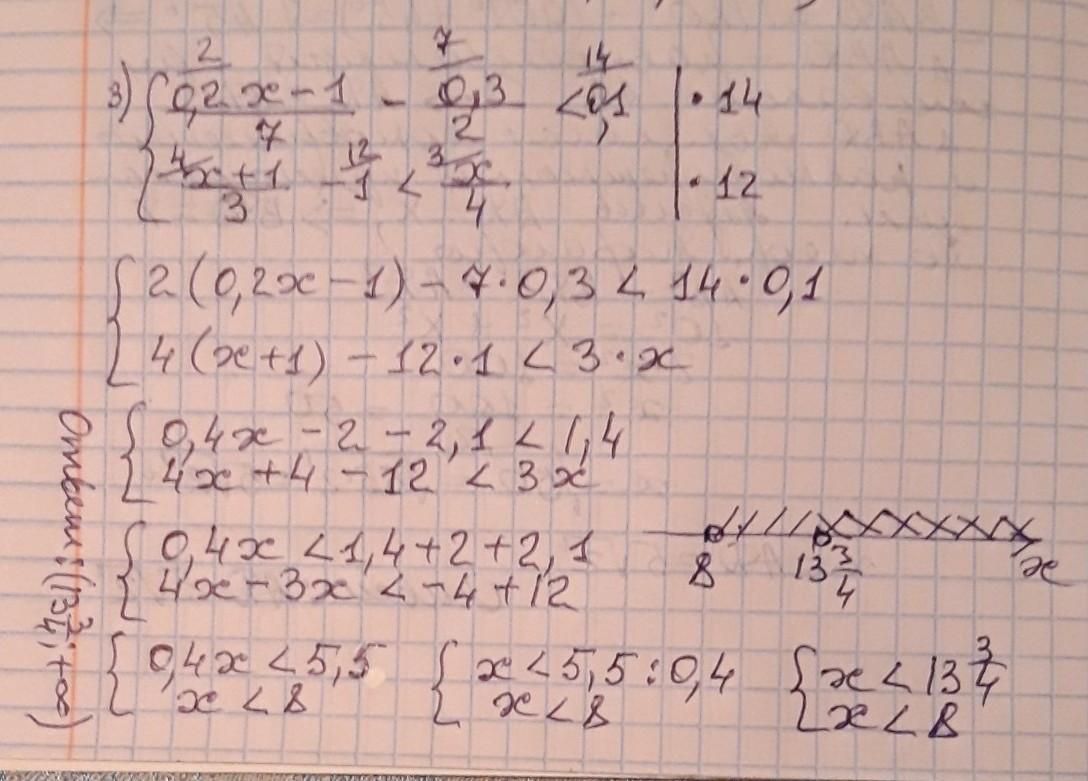 3) { (0,2x - 1)/7 - 0,3/2 < 0,1 | · 14
2 7 14
{ (x + 1)/3 - 1 < x/4 | · 12
4 12 3
{ 2(0,2x - 1) - 7 · 0,3 < 14 · 0,1
{ 4(x + 1) - 12 · 1 < 3 · x
{ 0,4x - 2 - 2,1 < 1,4
{ 4x + 4 - 12 < 3x
{ 0,4x < 1,4 + 2 + 2,1
{ 4x - 3x < -4 + 12
8 13 3/4 x
{ 0,4x < 5,5 { x < 5,5 : 0,4 { x < 13 3/4
{ x < 8 { x < 8 { x < 8
Ответ: (13 3/4; +∞)